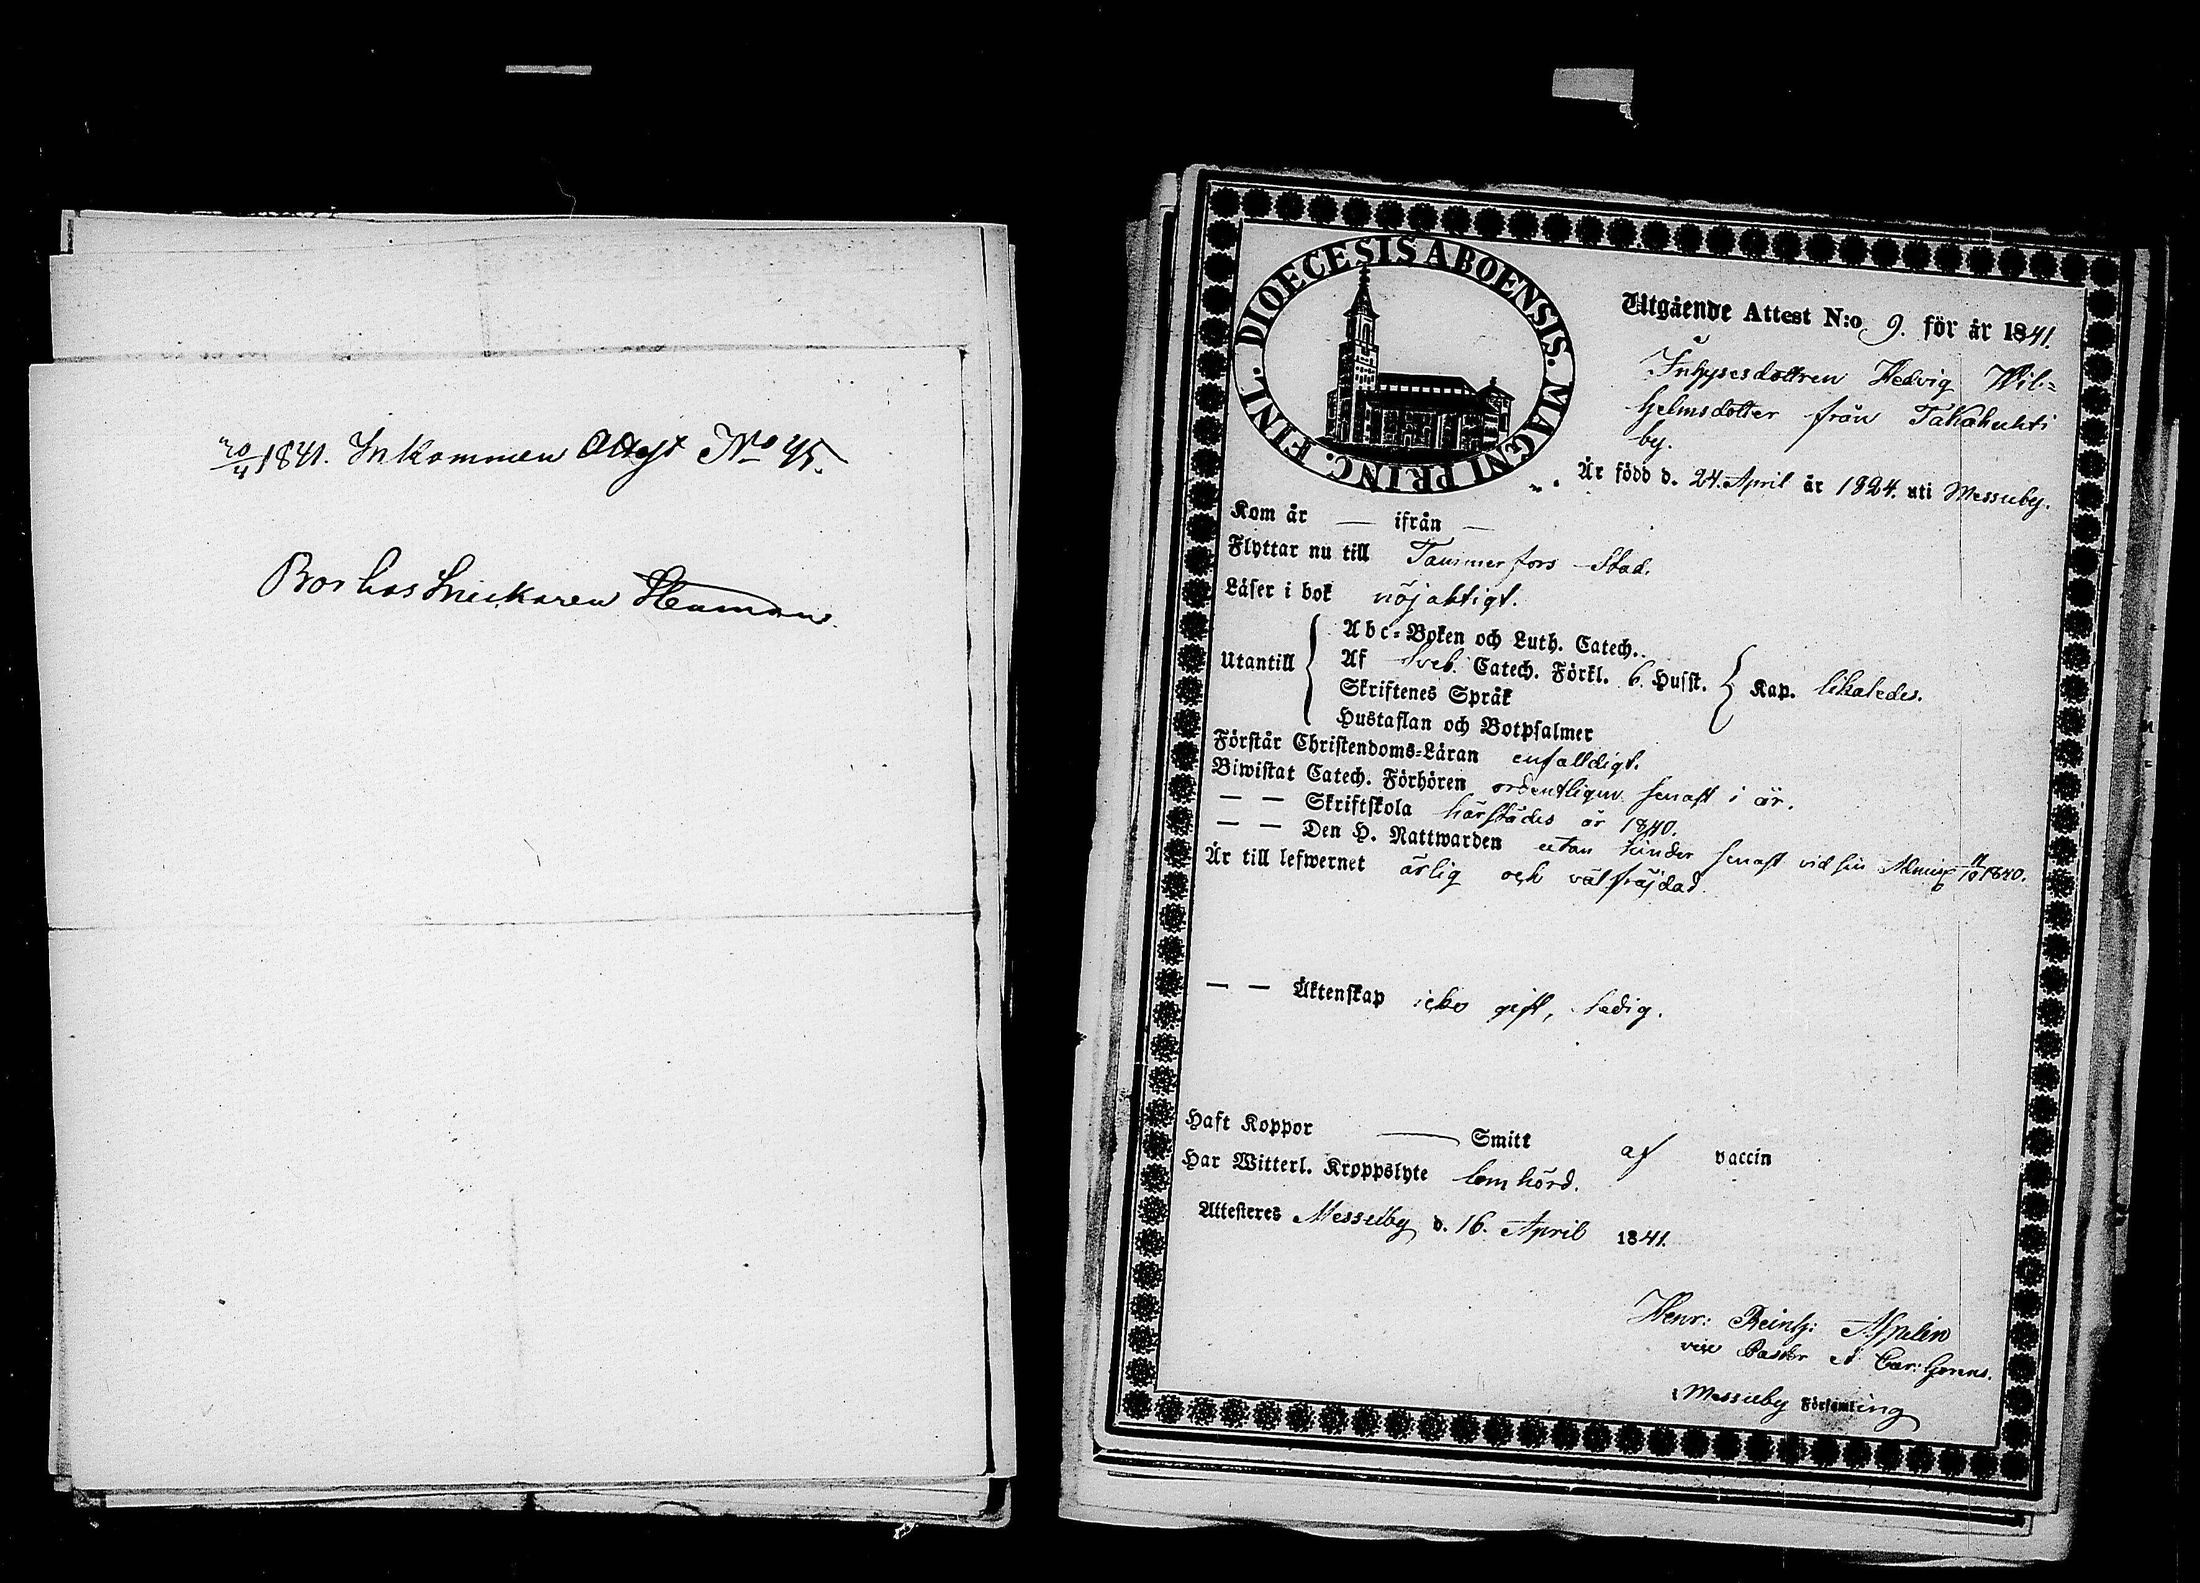 20/4 1841. Inkommen Attest No 45.
Bor hos Snickaren
DIOECESIS ABOENSIS. MAGNI PRINC. FINL.
Utgående Attest N:o 9. för år 1841.
Inhysesdottren Hedvig Wil=
helmsdotter från Takahuhti
by.
Är född d. 24. April år 1824. uti Messuby.
Kom år — ifrån —
Flyttar nu till Tammerfors Stad.
Läser i bok nöjaktigt.
Utantill
Abc=Boken och Luth. Catech.
Af Sveb. Catech. Förkl. 6. Husst.
Skriftenes Språk
Hustaflan och Botpsalmer
Kap. likaledes.
Förstår Christendoms=Läran enfalldigt.
Biwistat Catech. Förhören ordentligen senast i år.
— — Skriftskola härstädes år 1840.
— — Den H. Nattwarden utan hinder senast vid sin 1840.
Är till lefwernet ärlig och välfräjdad.
— — Äktenskap icke gift, ledig.
Haft Koppor — Smitt af vaccin
Har Witterl. Kroppslyte lomhörd.
Attesteres Messuby d. 16. April 1841.
Henr: Reinh: Aspelin
vice Pastor
i Messuby Församling